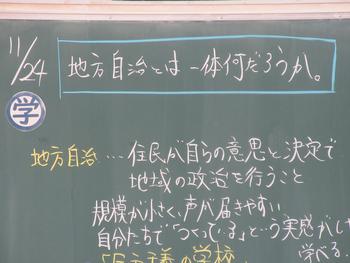 11/24
地方自治とは一体何だろうか。
学
地方自治…住民が自らの意思と決定で
地域の政治を行うこと
規模が小さく、声が届きやすい
自分たちで「つくっている」という実感がし
学べる
「民主主義の学校